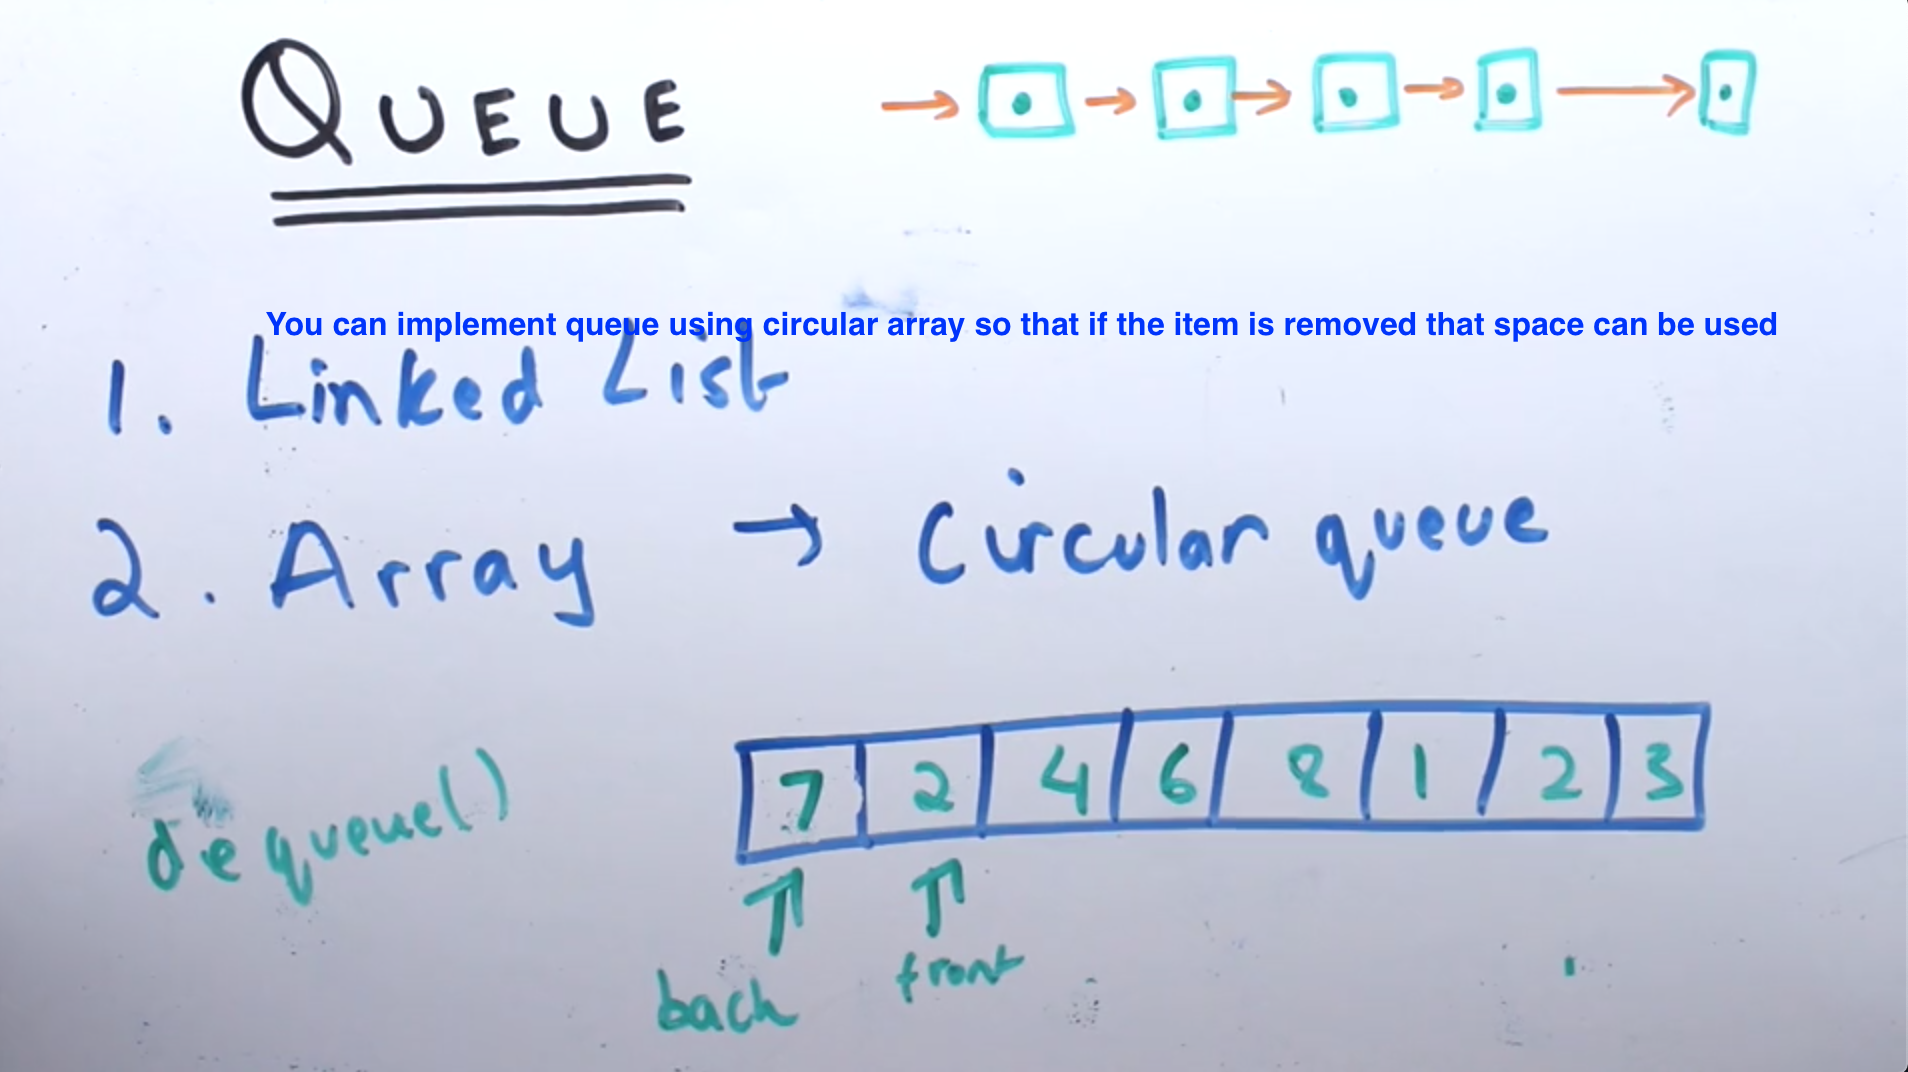 QUEUE
You can implement queue using circular array so that if the item is removed that space can be used
1. Linked List
2. Array → Circular queue
dequeue()
7 2 4 6 8 1 2 3
back front